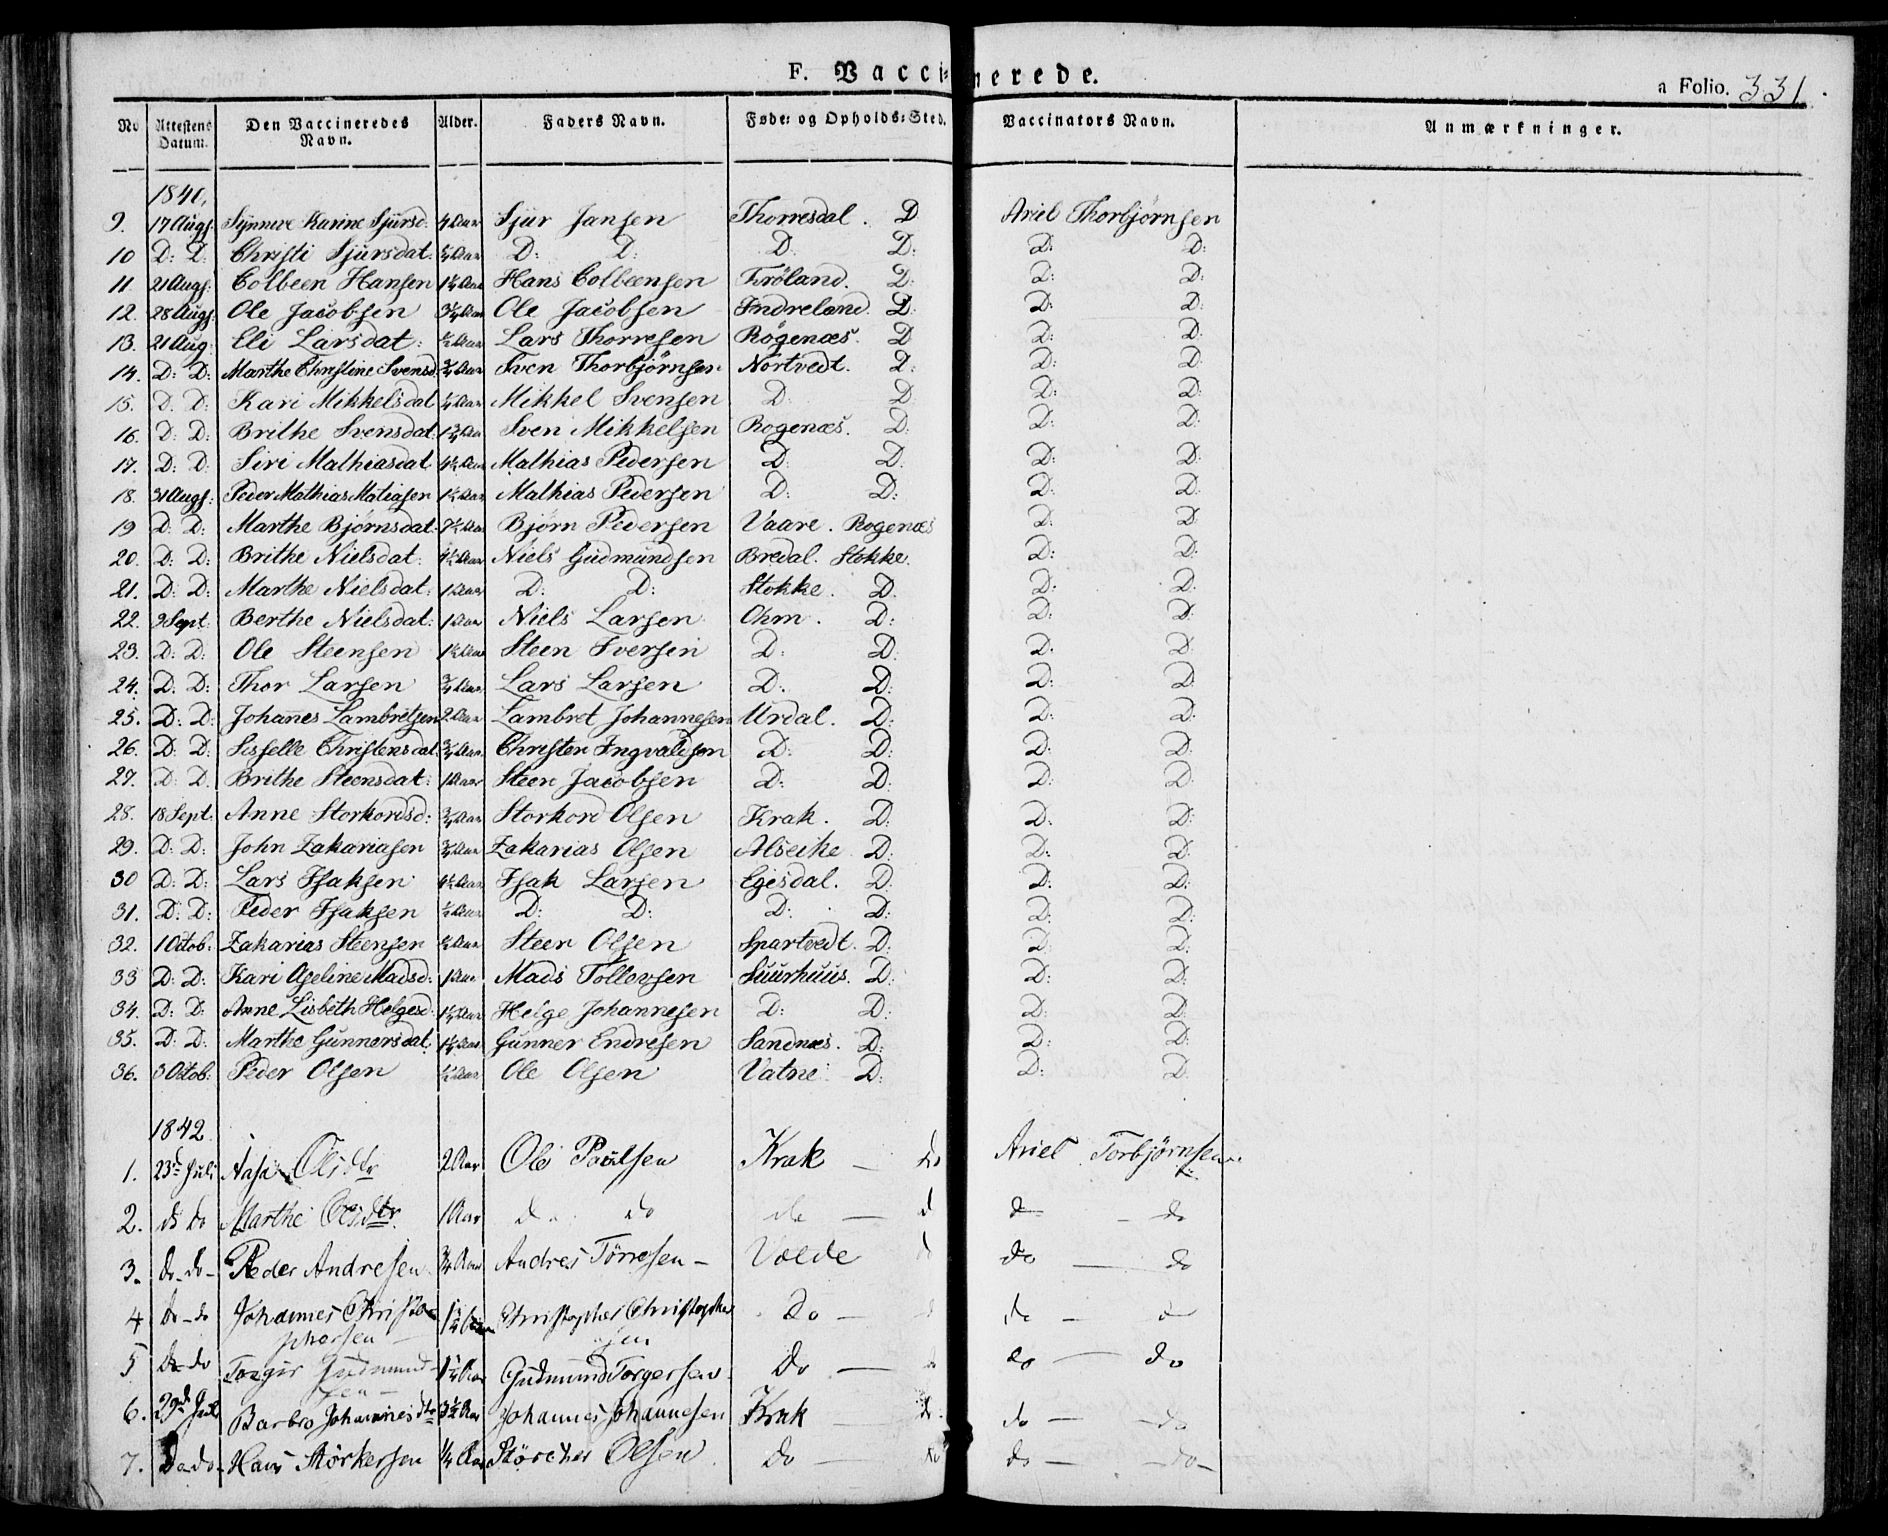 F. Vaccinerede.
a Folio. 331.
No Attestens Datum. Den Vaccineredes Navn. Alder. Faders Navn. Føde- og Opholds-Sted. Vaccinators Navn. Anmærkninger.
1841,
9. 17 Augs. Synneve Karine Sjursd: 4 Aar Sjur Jansen Thorresdal. D Ariel Thorbjørnsen
10 D: D: Christi Sjursdat. Aar D: D: D: D: D: D:
11 21 Augs: Colbeen Hansen Aar Hans Colbeensen Frøland. D: D: D:
12. 28 Augs: Ole Jacobsen Aar Ole Jacobsen Indreland. D: D: D:
13. 21 Aug: Eli Larsdat: Aar Lars Thorresen Rögenæs. D D: D:
14. D: D: Marthe Christine Svensd: Aar Sven Thorbjörnsen Nortvedt. D: D: D:
15. D. D: Kari Mikkelsdat Aar Mikkel Svensen D: D D: D:
16. D: D: Brithe Svensdat. Aar Sven Mikkelsen Rogenæs. D: D: D:
17. D: D: Siri Mathiasdat. Aar Mathias Pedersen D: D: D: D:
18. 31 Augs: Peder Mathias Matiasen Aar Mathias Pedersen D: D: D: D:
19 D: D: Marthe Bjørnsdat. 7½ Aar Bjørn Pedersen Vaare. Rogenæs D: D:
20. D: D: Brithe Nielsdat: 4½ Aar Niels Gudmundsen Bredal. Stokke. D: D:
21. D: D: Marthe Nielsdat: 1 Aar D: D: Stokke. D. D: D:
22. 9 Sept. Berthe Nielsdat: 1 Aar Niels Larsen Ohm. D: D: D:
23. D: D: Ole Steensen Aar Steen Iversen D: D: D. D:
24. D. D: Thor Larsen Aar Lars Larsen D: D: D: D:
25. D: D: Johanes Lambretsen 2 Aar Lambret Johannesen Urdal. D: D: D:
26. D: D: Sisselle Christensdat. Aar Christen Ingvaldsen D: D: D: D:
27. D: D. Brithe Steensdat: 1 Aar Steen Jacobsen D: D: D: D:
28. 18 Sept. Anne Storkordsd: Aar Storkord Olsen Krak. D: D: D:
29. D: D: John Zakariasen Aar Zakarias Olsen Alseike D: D: D:
30 D: D: Lars Isaksen 4½ Aar Isak Larsen Egesdal. D: D: D:
31. D: D: Peder Isaksen Aar D: D: D: D: D: D:
32. 1 Octob. Zakarias Steensen Aar Steen Olsen Spartvedt. D: D: D:
33 D: D: Kari Aseline Madsd: 1 Aar Mads Tollevsen Suurhuus. D: D: D:
34. D: D: Anne Lisbeth Helgesd: Aar Helge Johannesen D: D: D: D:
35. D: D: Marthe Gunnersdat. Aar Gunner Endresen Sandnæs. D: D: D:
36. 3 Octob: Peder Olsen Aar Ole Olsen Vatne. D: D: D:
1842
1. 23de Juli Aasa Olsdtr 2 Aar Ole Poulsen Krak — do Ariel Torbjørnsen
2. do do Marthe Olsdtr. 1 Aar do do do — d do — do
3. do-do- Peder Andresen ¾ Aar Andres Törresen - Vælde d do — do
4 do-do Johannes Christo- Aar Christopher Christopher do — do — do
phersen — sen
5 do do Torger Gudmund- Aar Gudmund Torgersen do — do — do
sen —
6. 29d Juli Barbro Johannesdtr 3½ Aar Johannes Johannesen Krak — do. do — do
7. Do do. Hans Størkersen ¼ Aar Størcker Olsen do — do do — -do-